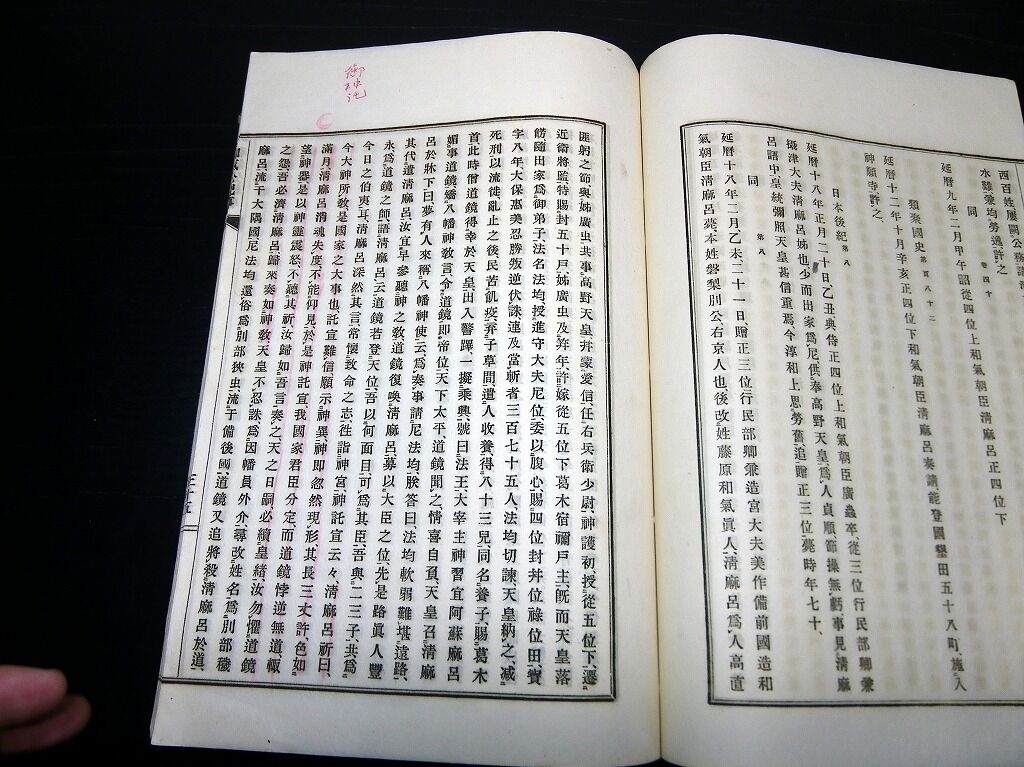 西百姓
水難兼均勞逸許之
同 卷四十
延曆九年二月甲午詔從四位上和氣朝臣清麻呂正四位下
類聚國史 第百八十二
延曆十二年十月辛亥正四位下和氣朝臣清麻呂奏請能登國墾田五十八町、施入
神願寺、許之、
日本後紀 第八
延曆十八年正月二十日乙丑典侍正四位上和氣朝臣廣蟲卒、從三位行民部卿兼
攝津大夫清麻呂姊也少而出家爲尼、供奉高野天皇、爲人貞順節操無虧事見清麻
呂語中皇統彌照天皇甚信重焉、今淳和上思勞舊、追贈正三位、薨時年七十、
同 第八
延曆十八年二月乙未二十一日贈正三位行民部卿兼造宮大夫美作備前國造和
氣朝臣清麻呂薨、本姓磐梨別公右京人也後改姓藤原和氣眞人、清麻呂爲人高直
匪躬之節與姊廣虫共事高野天皇并蒙愛信、任右兵衛少尉、神護初授從五位下、遷
近衛將監特賜封五十戶、姊廣虫及笄年、許嫁從五位下葛木宿禰戶主、旣而天皇落
餝隨出家爲御弟子、法名法均、授進守大夫尼位、委以腹心、賜四位封并位祿位田、寶
字八年大保惠美忍勝叛逆伏誅連及當斬者三百七十五人、法均切諫天皇納之、减
死刑以流徙亂止之後民苦飢疫、弃子草間、遣人收養、得八十三兒、同名養子、賜葛木
首此時僧道鏡得幸於天皇、出入警蹕一擬乘輿、號曰法王大宰主神習宜阿蘇麻呂
媚事道鏡、矯八幡神敎言、令道鏡卽帝位、天下太平、道鏡聞之、情喜自負、天皇召清麻
呂於牀下曰夢有人來稱八幡神使云、爲奏事請尼法均、朕答曰、法均軟弱難堪遠路、
其代遣清麻呂、汝宜早參聽神之敎、道鏡復喚清麻呂、募以大臣之位、先是路眞人豐
永爲道鏡之師、語清麻呂云道鏡若登天位、吾以何面目可爲其臣、吾與二三子、共爲
今日之伯夷耳、清麻呂深然其言、常懷致命之志、徃詣神宮、神託宣云々、清麻呂祈曰、
今大神所敎是國家之大事也、託宣難信、願示神異、神卽忽然現形、其長三丈許色如
滿月、清麻呂消魂失度不能仰見、於是神託宣我國家君臣分定而道鏡悖逆無道輙
望神器、是以神靈震怒、不聽其祈、汝歸如吾言奏之、天之日嗣必續皇緖、汝勿懼道鏡
之怨、吾必濟清麻呂歸來奏如神敎、天皇不忍誅爲因幡員外介、尋改姓名爲別部穢
麻呂、流于大隅國、尼法均還俗爲別部狹虫、流于備後國、道鏡又追將殺清麻呂於道、
三十五
御神託